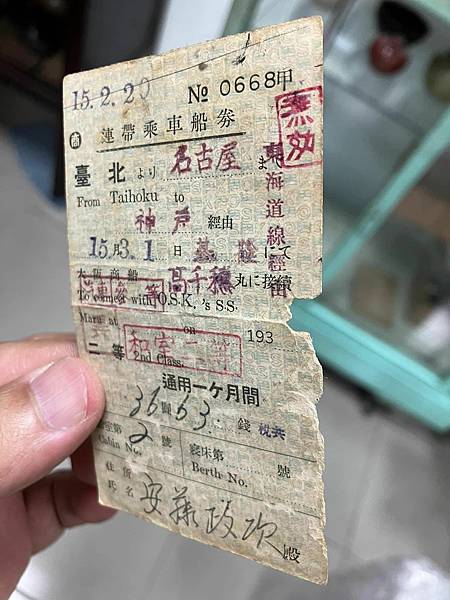 15.2.20 № 0668甲
無効
連帶乘車船劵
臺北より名古屋まで
From Taihoku to
神戸 經由
東海道線經由
15月3.1日基隆にて
大阪商船 高千穗 丸に接續
To connect with O.S.K.'s S.S.
Maru at on 193
二等 和室二等
2nd Class.
通用一ケ月間
36圓63錢 稅共
室第2號 寢床第 號
Cabin No. Berth No.
住所
氏名 安藤政次殿